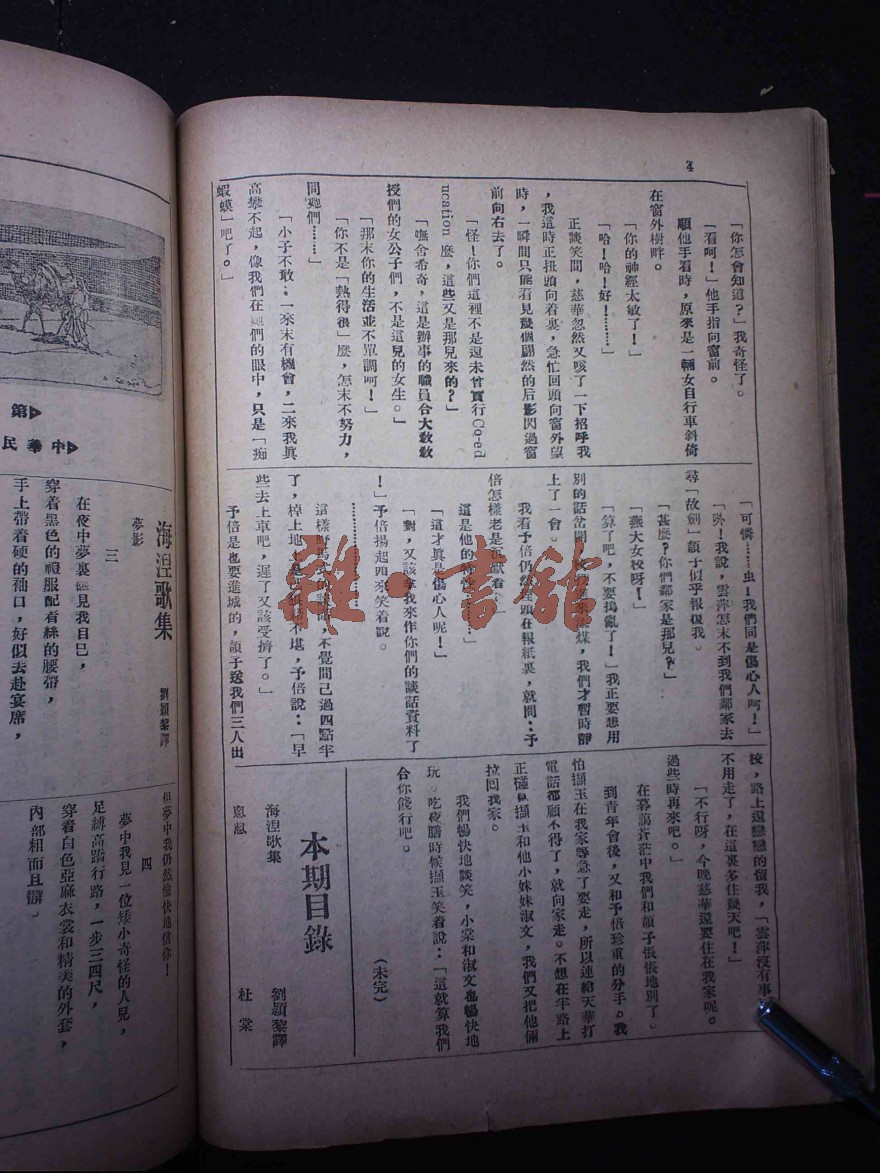 4
「你怎會知道？」我奇怪了。
「看呵！」他手指向窗前。
順他手看時，原來是一輛女自行車斜倚
在窗外樹畔。
「你的神經太敏了！」
「哈！哈！好！………」
正談笑間，慈華忽然又咳了一下招呼我
，我這時正扭頭向着裏，急忙回頭向窗外望
時，一瞬間只能看見幾個翩然的后影閃過窗
前向右去了。
「怪！你們這裡不是還未曾實行Co-ed
ucation 麼，這些又是那兒來的？」
「嘸舍希奇，這是辦事的職員合大敎敎
授們的女公子們，不是這兒的女生。」
「那末你的生活並不單調呵！」
「你不是「熱得很」麼，怎末不努力，
問她們……」
「小子不敢；一來末有機會，二來我眞
高攀不起，像我們在她們的眼中，只是「痴
蝦蟆」吧了。」
「可憐……虫！我們同是傷心人呵！」
「咻！我說，雲萍怎末不到我們鄰家去
尋「故劍」頷于似乎報復我。
「甚麼？你們鄰家是那兒？」
「燕大女校呀！」
「算了吧，不要搗亂了！」我正要想用
別的話岔開
，我們才暫時靜
上了一會。
我看予倍仍然
頭在報紙裏，就問：予
倍怎樣老是
這是他的
「這才眞是傷心人呢！」
「對，又該拿我來作你們的談話資料了
！」予倍揚起頭來笑着說。
…………………
這樣
不覺間己過四點半
了，棹上地
不堪，予倍說：「早
些去上車吧，遲了又該受擠了。」
予倍是也要進城的，頷子送我們三人出
校，路上還戀戀的留我，「雲萍沒有事
不用走了，在這裏多住幾天吧！」
「不行呀，今晚慈華還要住在我家呢。
過些時再來吧。」
在暮藹蒼茫中我們和頷子悵悵地別了。
到青年會後，又和予倍珍重的分手。我
怕擷玉在我家等急了要走，所以連給天華打
電話都顧不得了，就向家走。不想在半路上
正碰見擷玉和他小妹妹淑文，我們又把他倆
拉回我家。
我們暢快地談笑，小棠和淑文也暢快地
玩。吃夜膳時候擷玉笑着說：「這就算我們
合你餞行吧。
（未完）
本期目錄
海涅歌集
劉穎黎譯
杜棠
第
中華民
海涅歌集
劉穎黎譯
夢影
三
在夜中夢裏瞧見我自己，
穿着黑色的禮服配着絲的腰帶，
手上帶着硬的袖口，好似去赴宴席，
但夢中我仍然愉快地信你！
四
夢中我見一位矮小奇怪的人兒，
足縛高蹻行路，一步三四尺，
穿着白色亞麻衣裳和精美的外套，
內部粗而且髒。
雜·書館